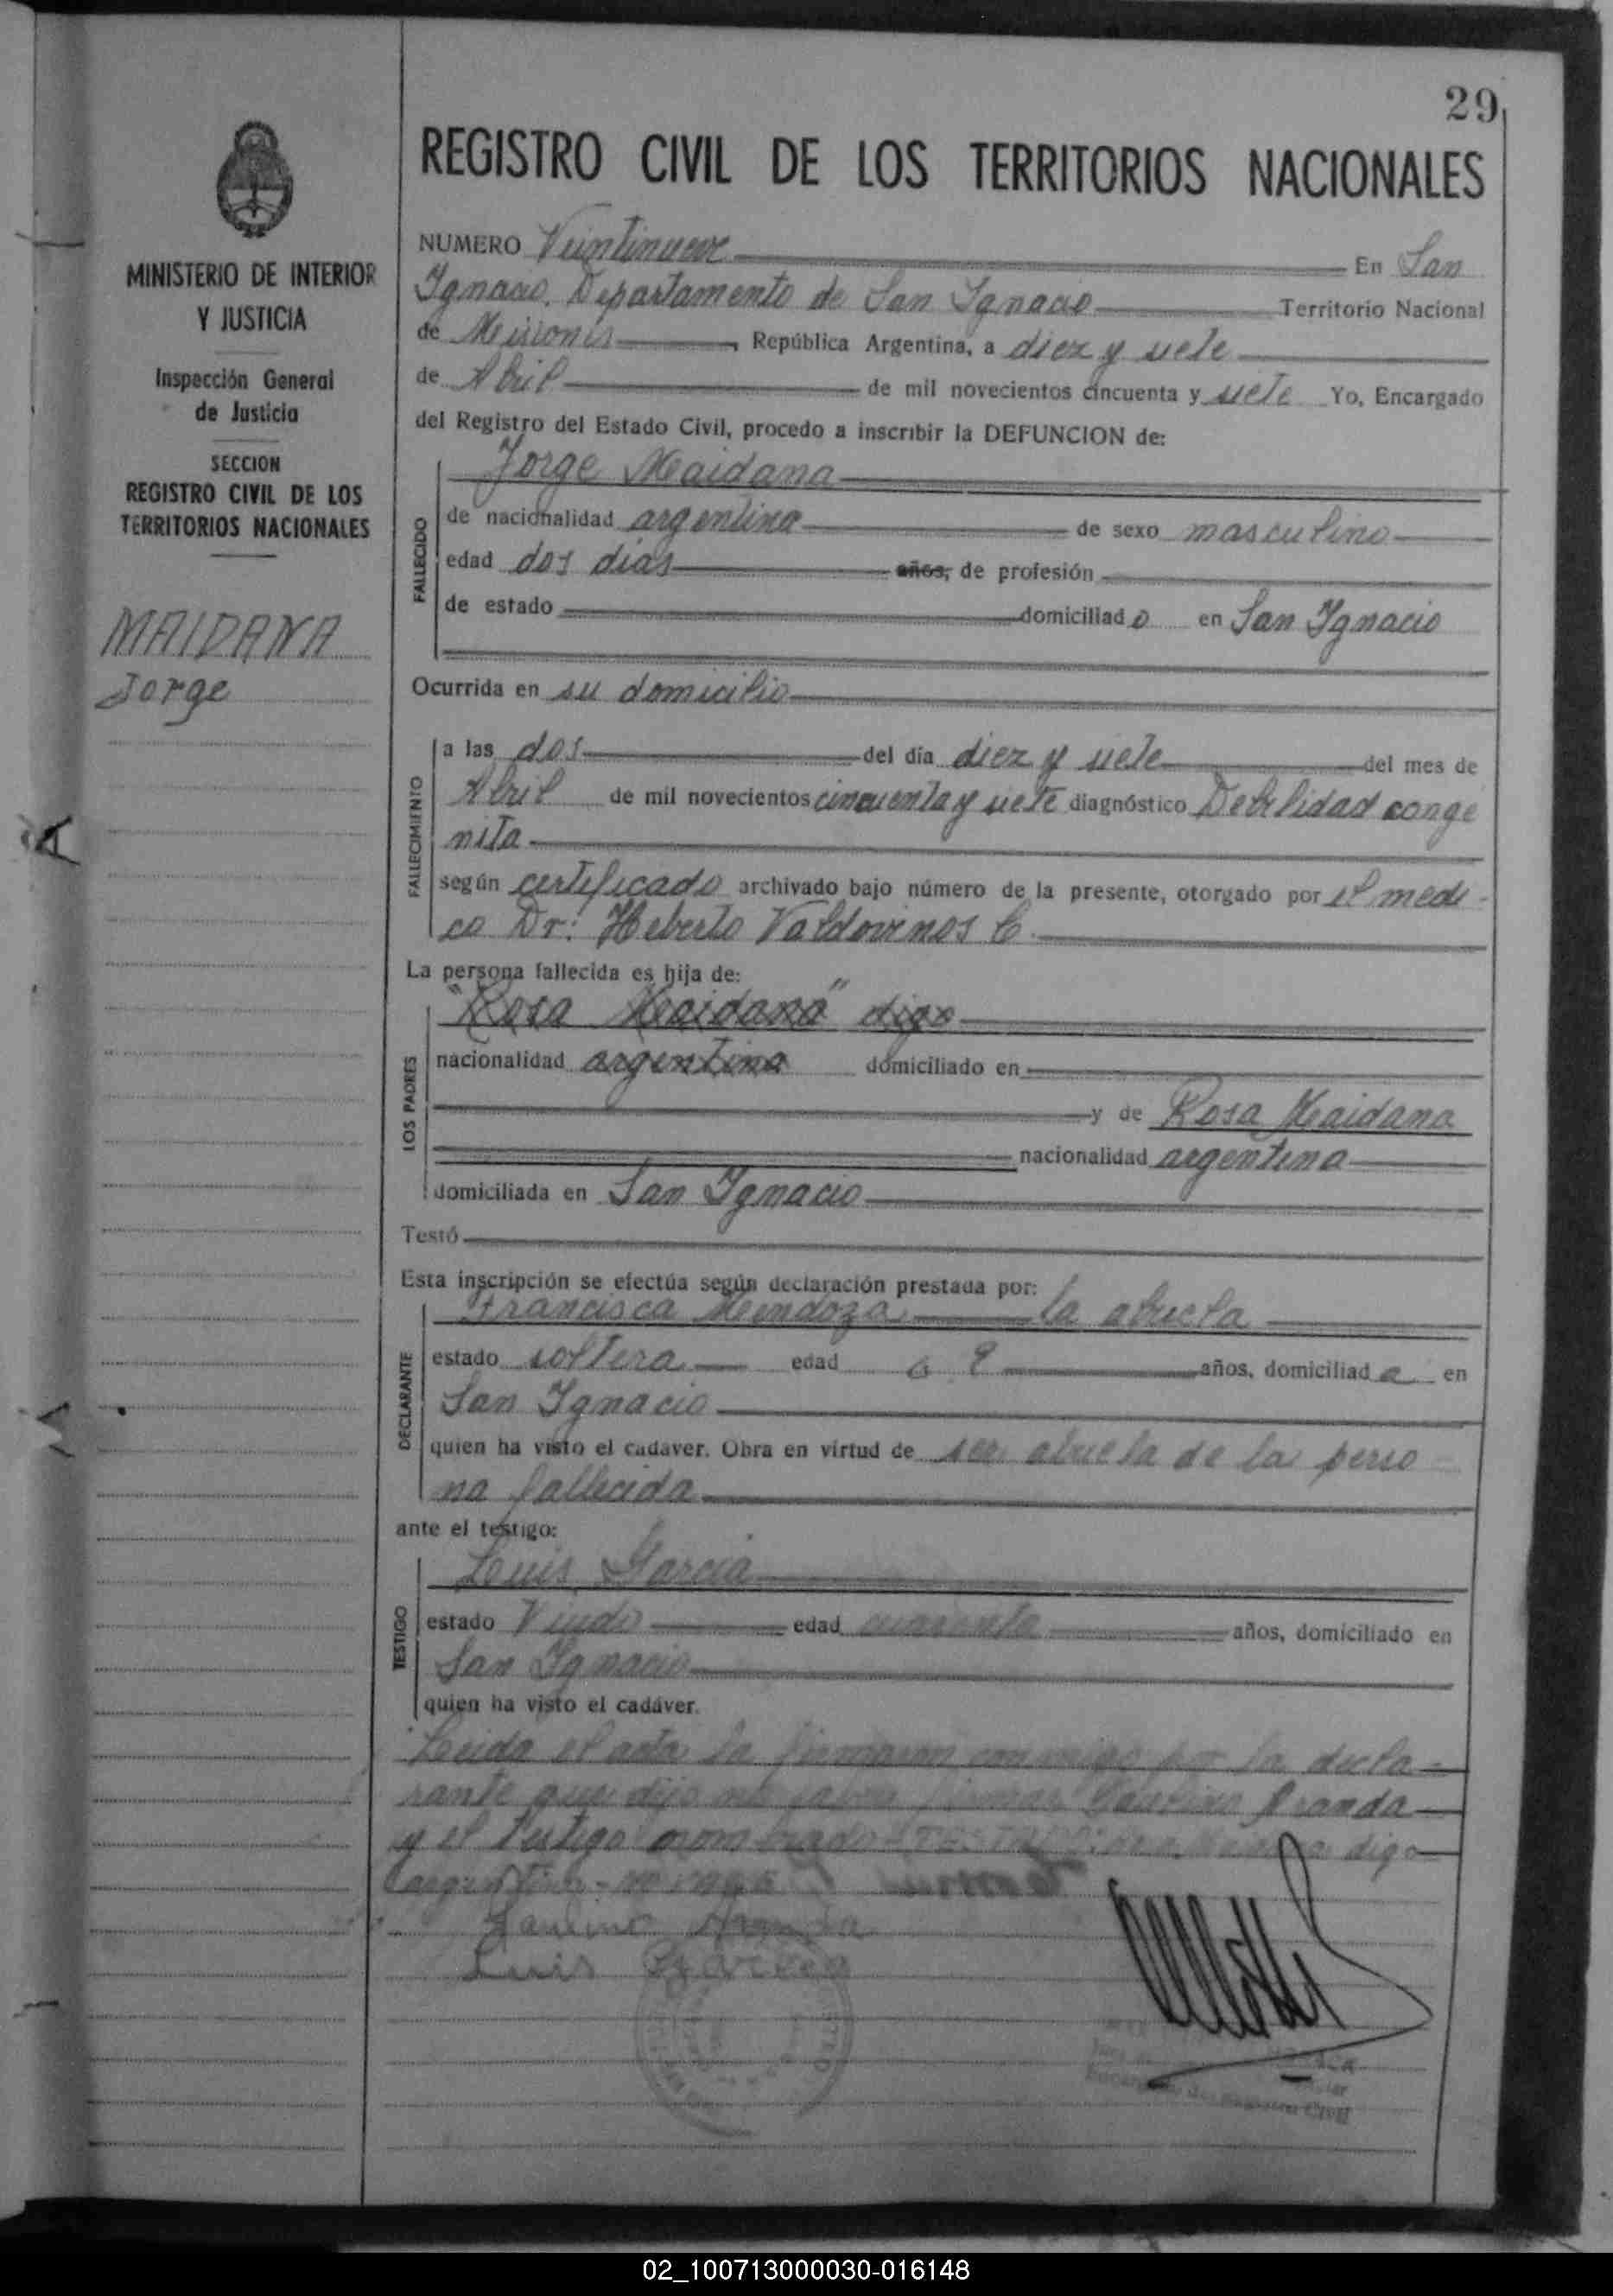 29
REGISTRO CIVIL DE LOS TERRITORIOS NACIONALES
MINISTERIO DE INTERIOR
Y JUSTICIA
Inspección General
de Justicia
SECCION
REGISTRO CIVIL DE LOS
TERRITORIOS NACIONALES
MAIDANA
Jorge
NUMERO Veintinueve En San
Ygnacio. Departamento de San Ygnacio Territorio Nacional
de Misiones, República Argentina, a diez y siete
de Abril de mil novecientos cincuenta y siete Yo, Encargado
del Registro del Estado Civil, procedo a inscribir la DEFUNCION de:
Jorge Maidana
FALLECIDO
de nacionalidad argentina de sexo masculino
edad dos dias años, de profesión
de estado domiciliado en San Ygnacio
Ocurrida en su domicilio
FALLECIMIENTO
a las dos del día diez y siete del mes de
Abril de mil novecientos cincuenta y siete diagnóstico Debilidad conge
nita
según certificado archivado bajo número de la presente, otorgado por el medi-
co Dr: Heberto Valdovinos C.
La persona fallecida es hija de:
LOS PADRES
"Rosa Maidana" digo
nacionalidad argentina domiciliado en
y de Rosa Maidana
nacionalidad argentina
domiciliada en San Ygnacio
Testó
Esta inscripción se efectúa según declaración prestada por:
DECLARANTE
Francisca Mendoza la abuela
estado soltera edad años, domiciliada en
San Ygnacio
quien ha visto el cadaver. Obra en virtud de ser abuela de la perso-
na fallecida
ante el testigo:
TESTIGO
Luis Garcia
estado Viudo edad cuarenta años, domiciliado en
San Ygnacio
quien ha visto el cadáver.
Leida el acta la firmaron conmigo por la decla-
rante que dijo no saber firmar Paulino Aranda
y el testigo nombrado digo
argentina
Paulino Aranda
Luis Garcia
Encargado del Registro Civil
02_100713000030-016148